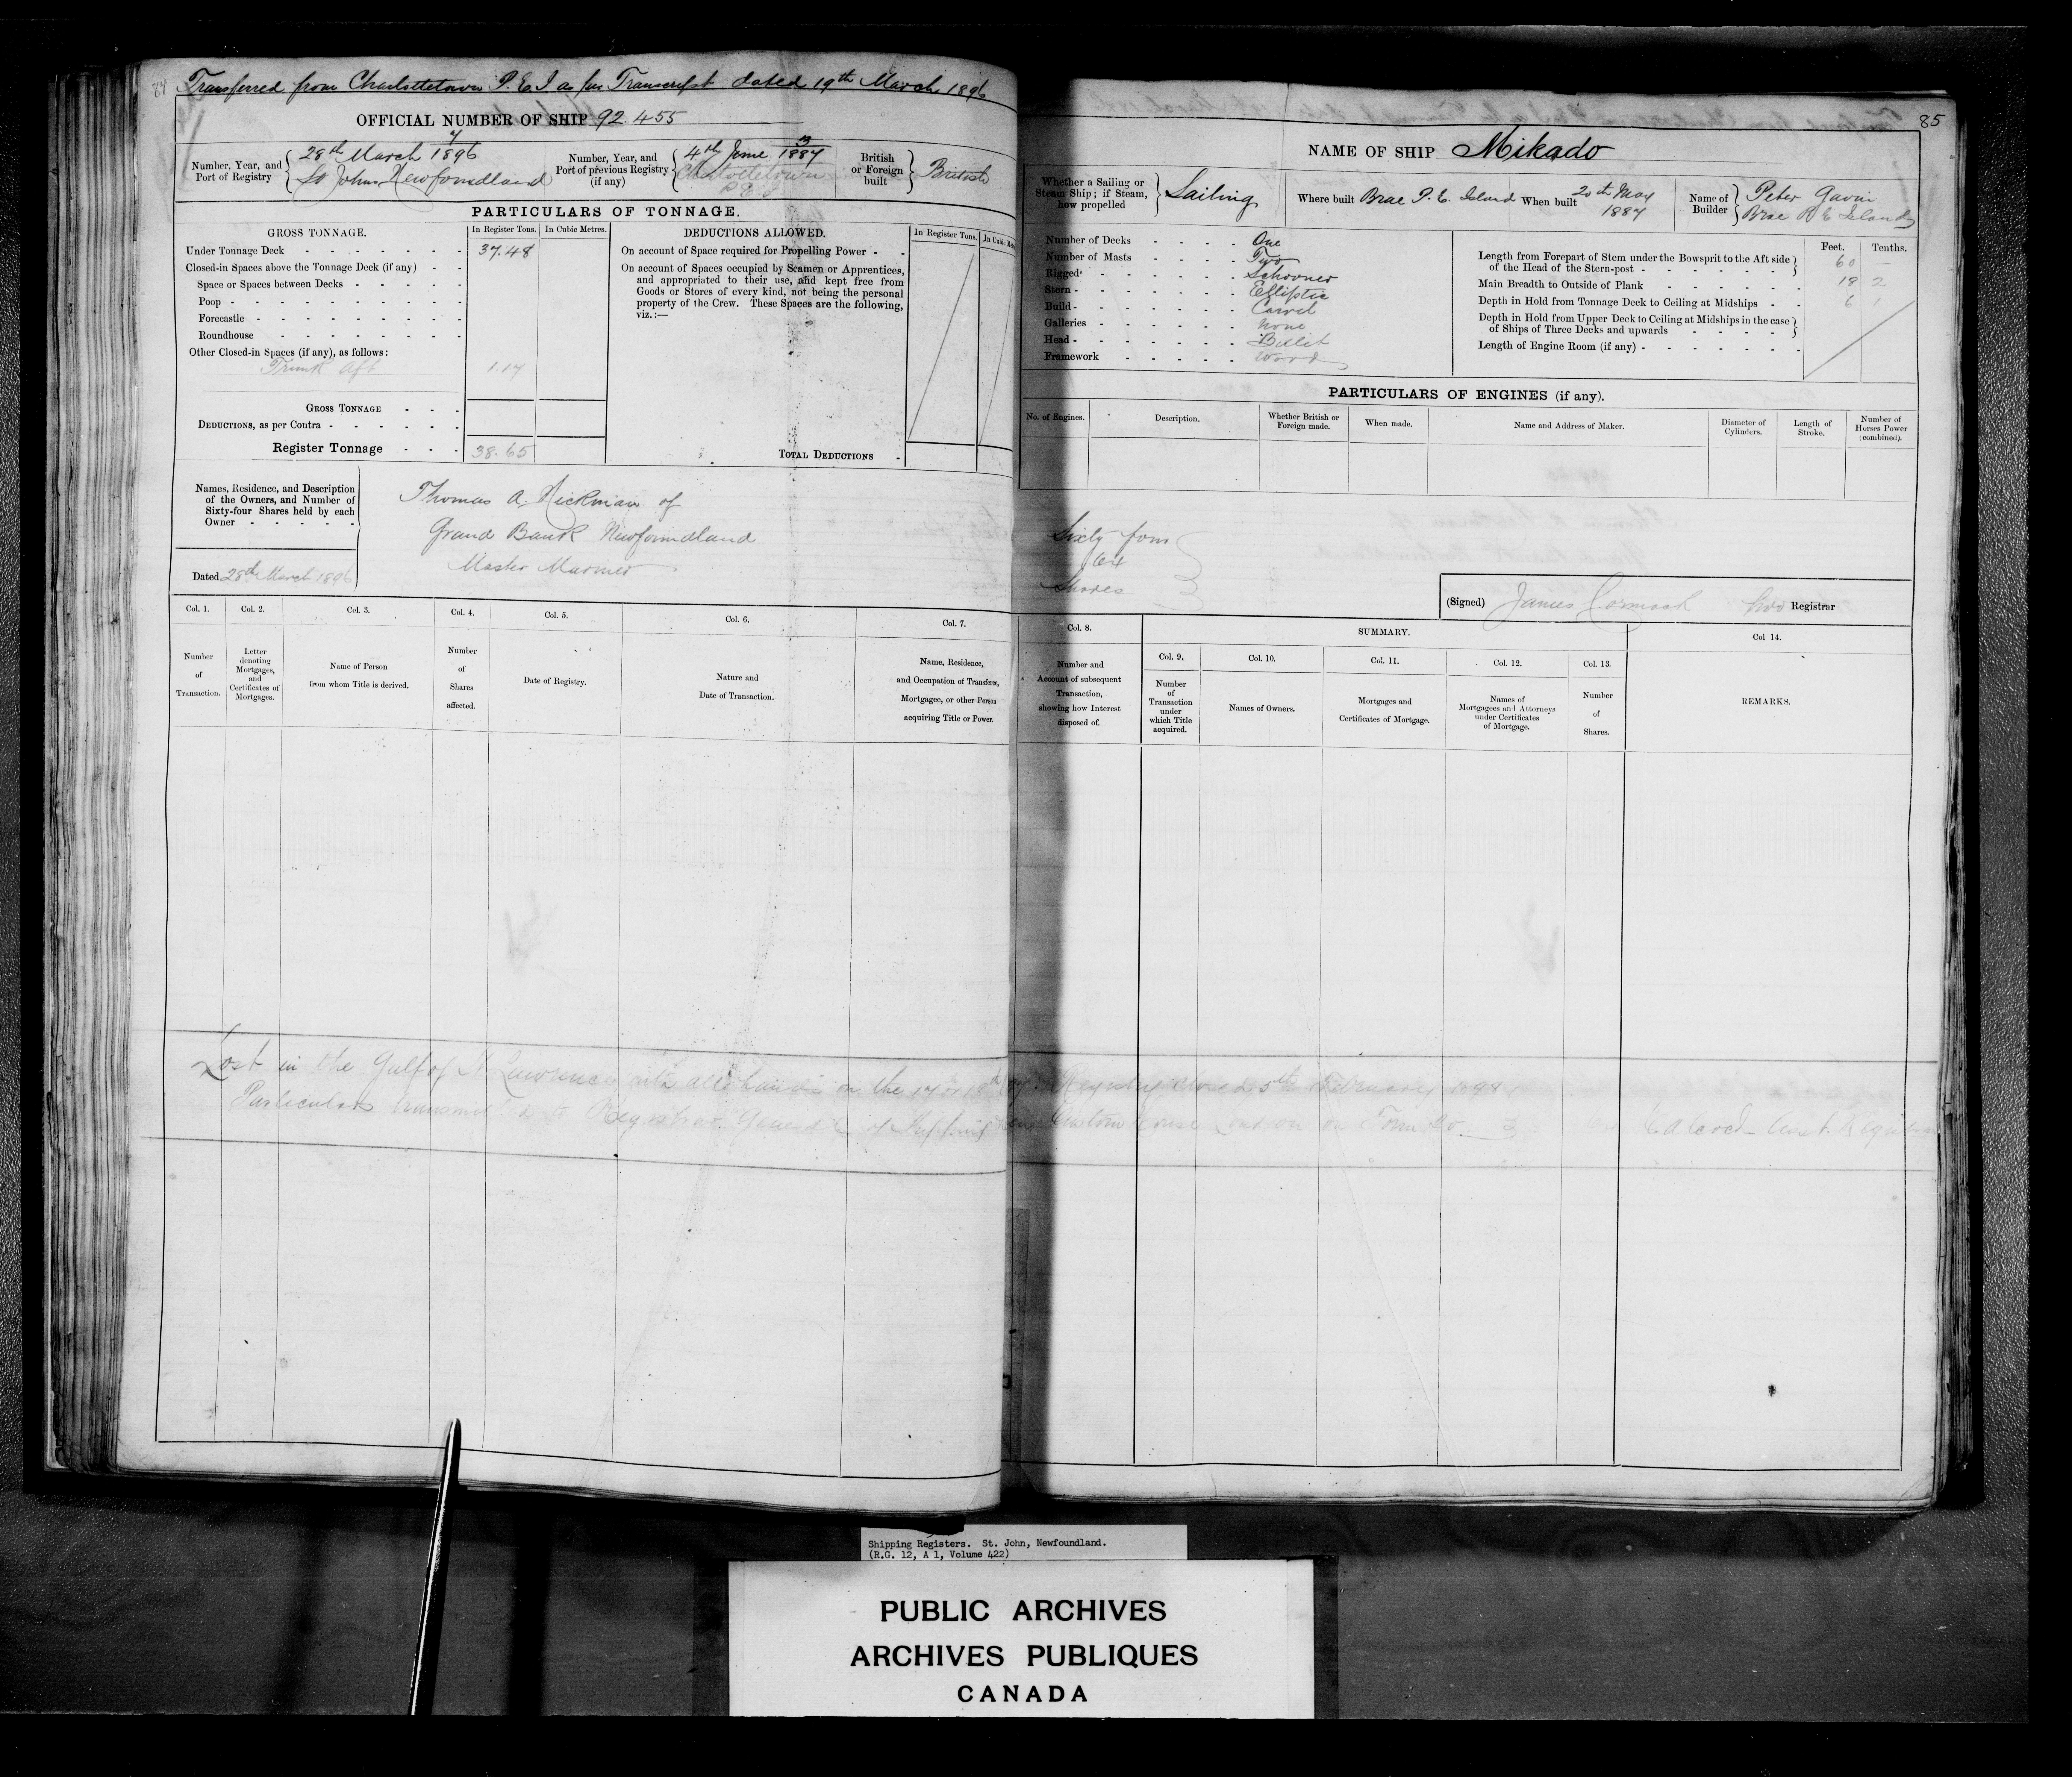 84 Transferred from Charlottetown P.E.I as per Transcript dated 19th March 1896
OFFICIAL NUMBER OF SHIP 92.455
Number, Year, and Port of Registry 7 28th March 1896 St Johns Newfoundland
Number, Year, and Port of previous Registry (if any) 4th June 1887 Charlottetown P.E.I
British or Foreign built British
PARTICULARS OF TONNAGE.
GROSS TONNAGE. In Register Tons. In Cubic Metres.
Under Tonnage Deck 37.48
Closed-in Spaces above the Tonnage Deck (if any)
Space or Spaces between Decks
Poop
Forecastle
Roundhouse
Other Closed-in Spaces (if any), as follows:
Trunk Aft 1.17
GROSS TONNAGE
DEDUCTIONS, as per Contra
Register Tonnage 38.65
DEDUCTIONS ALLOWED. In Register Tons. In Cubic
On account of Space required for Propelling Power
On account of Spaces occupied by Seamen or Apprentices,
and appropriated to their use, and kept free from
Goods or Stores of every kind, not being the personal
property of the Crew. These Spaces are the following,
viz.:—
TOTAL DEDUCTIONS
Names, Residence, and Description
of the Owners, and Number of
Sixty-four Shares held by each
Owner
Thomas A. Hickman of
Grand Bank Newfoundland
Master Mariner
Dated 28th March 1896
Col. 1. Col. 2. Col. 3. Col. 4. Col. 5. Col. 6. Col. 7.
Number of Transaction.
Letter denoting Mortgages, and Certificates of Mortgages.
Name of Person from whom Title is derived.
Number of Shares affected.
Date of Registry.
Nature and Date of Transaction.
Name, Residence, and Occupation of Transferee, Mortgagee, or other Person acquiring Title or Power.
85
NAME OF SHIP Mikado
Whether a Sailing or Steam Ship; if Steam, how propelled Sailing
Where built Brae P.E. Island When built 20th May 1887
Name of Builder Peter Gavin Brae P.E. Island
Number of Decks One
Number of Masts Two
Rigged Schooner
Stern Elliptic
Build Carvel
Galleries None
Head Billet
Framework Wood
Feet. Tenths.
Length from Forepart of Stem under the Bowsprit to the Aft side of the Head of the Stern-post 60 –
Main Breadth to Outside of Plank 19 2
Depth in Hold from Tonnage Deck to Ceiling at Midships 6 1
Depth in Hold from Upper Deck to Ceiling at Midships in the case of Ships of Three Decks and upwards
Length of Engine Room (if any)
PARTICULARS OF ENGINES (if any).
No. of Engines. Description. Whether British or Foreign made. When made. Name and Address of Maker. Diameter of Cylinders. Length of Stroke. Number of Horses Power (combined).
Sixty four
64
Shares
(Signed) James Cormack Registrar
Col. 8. SUMMARY. Col 14.
Col. 9. Col. 10. Col. 11. Col. 12. Col. 13.
Number and Account of subsequent Transaction, showing how Interest disposed of.
Number of Transaction under which Title acquired.
Names of Owners.
Mortgages and Certificates of Mortgage.
Names of Mortgagees and Attorneys under Certificates of Mortgage.
Number of Shares.
REMARKS.
Lost in the Gulf of St Lawrence with all hands on the 17 or 18th Registry closed 5th February
Particulars transmitted to Registrar General of Shipping Custom House London
Shipping Registers. St. John, Newfoundland.
(R.G. 12, A 1, Volume 422)
PUBLIC ARCHIVES
ARCHIVES PUBLIQUES
CANADA